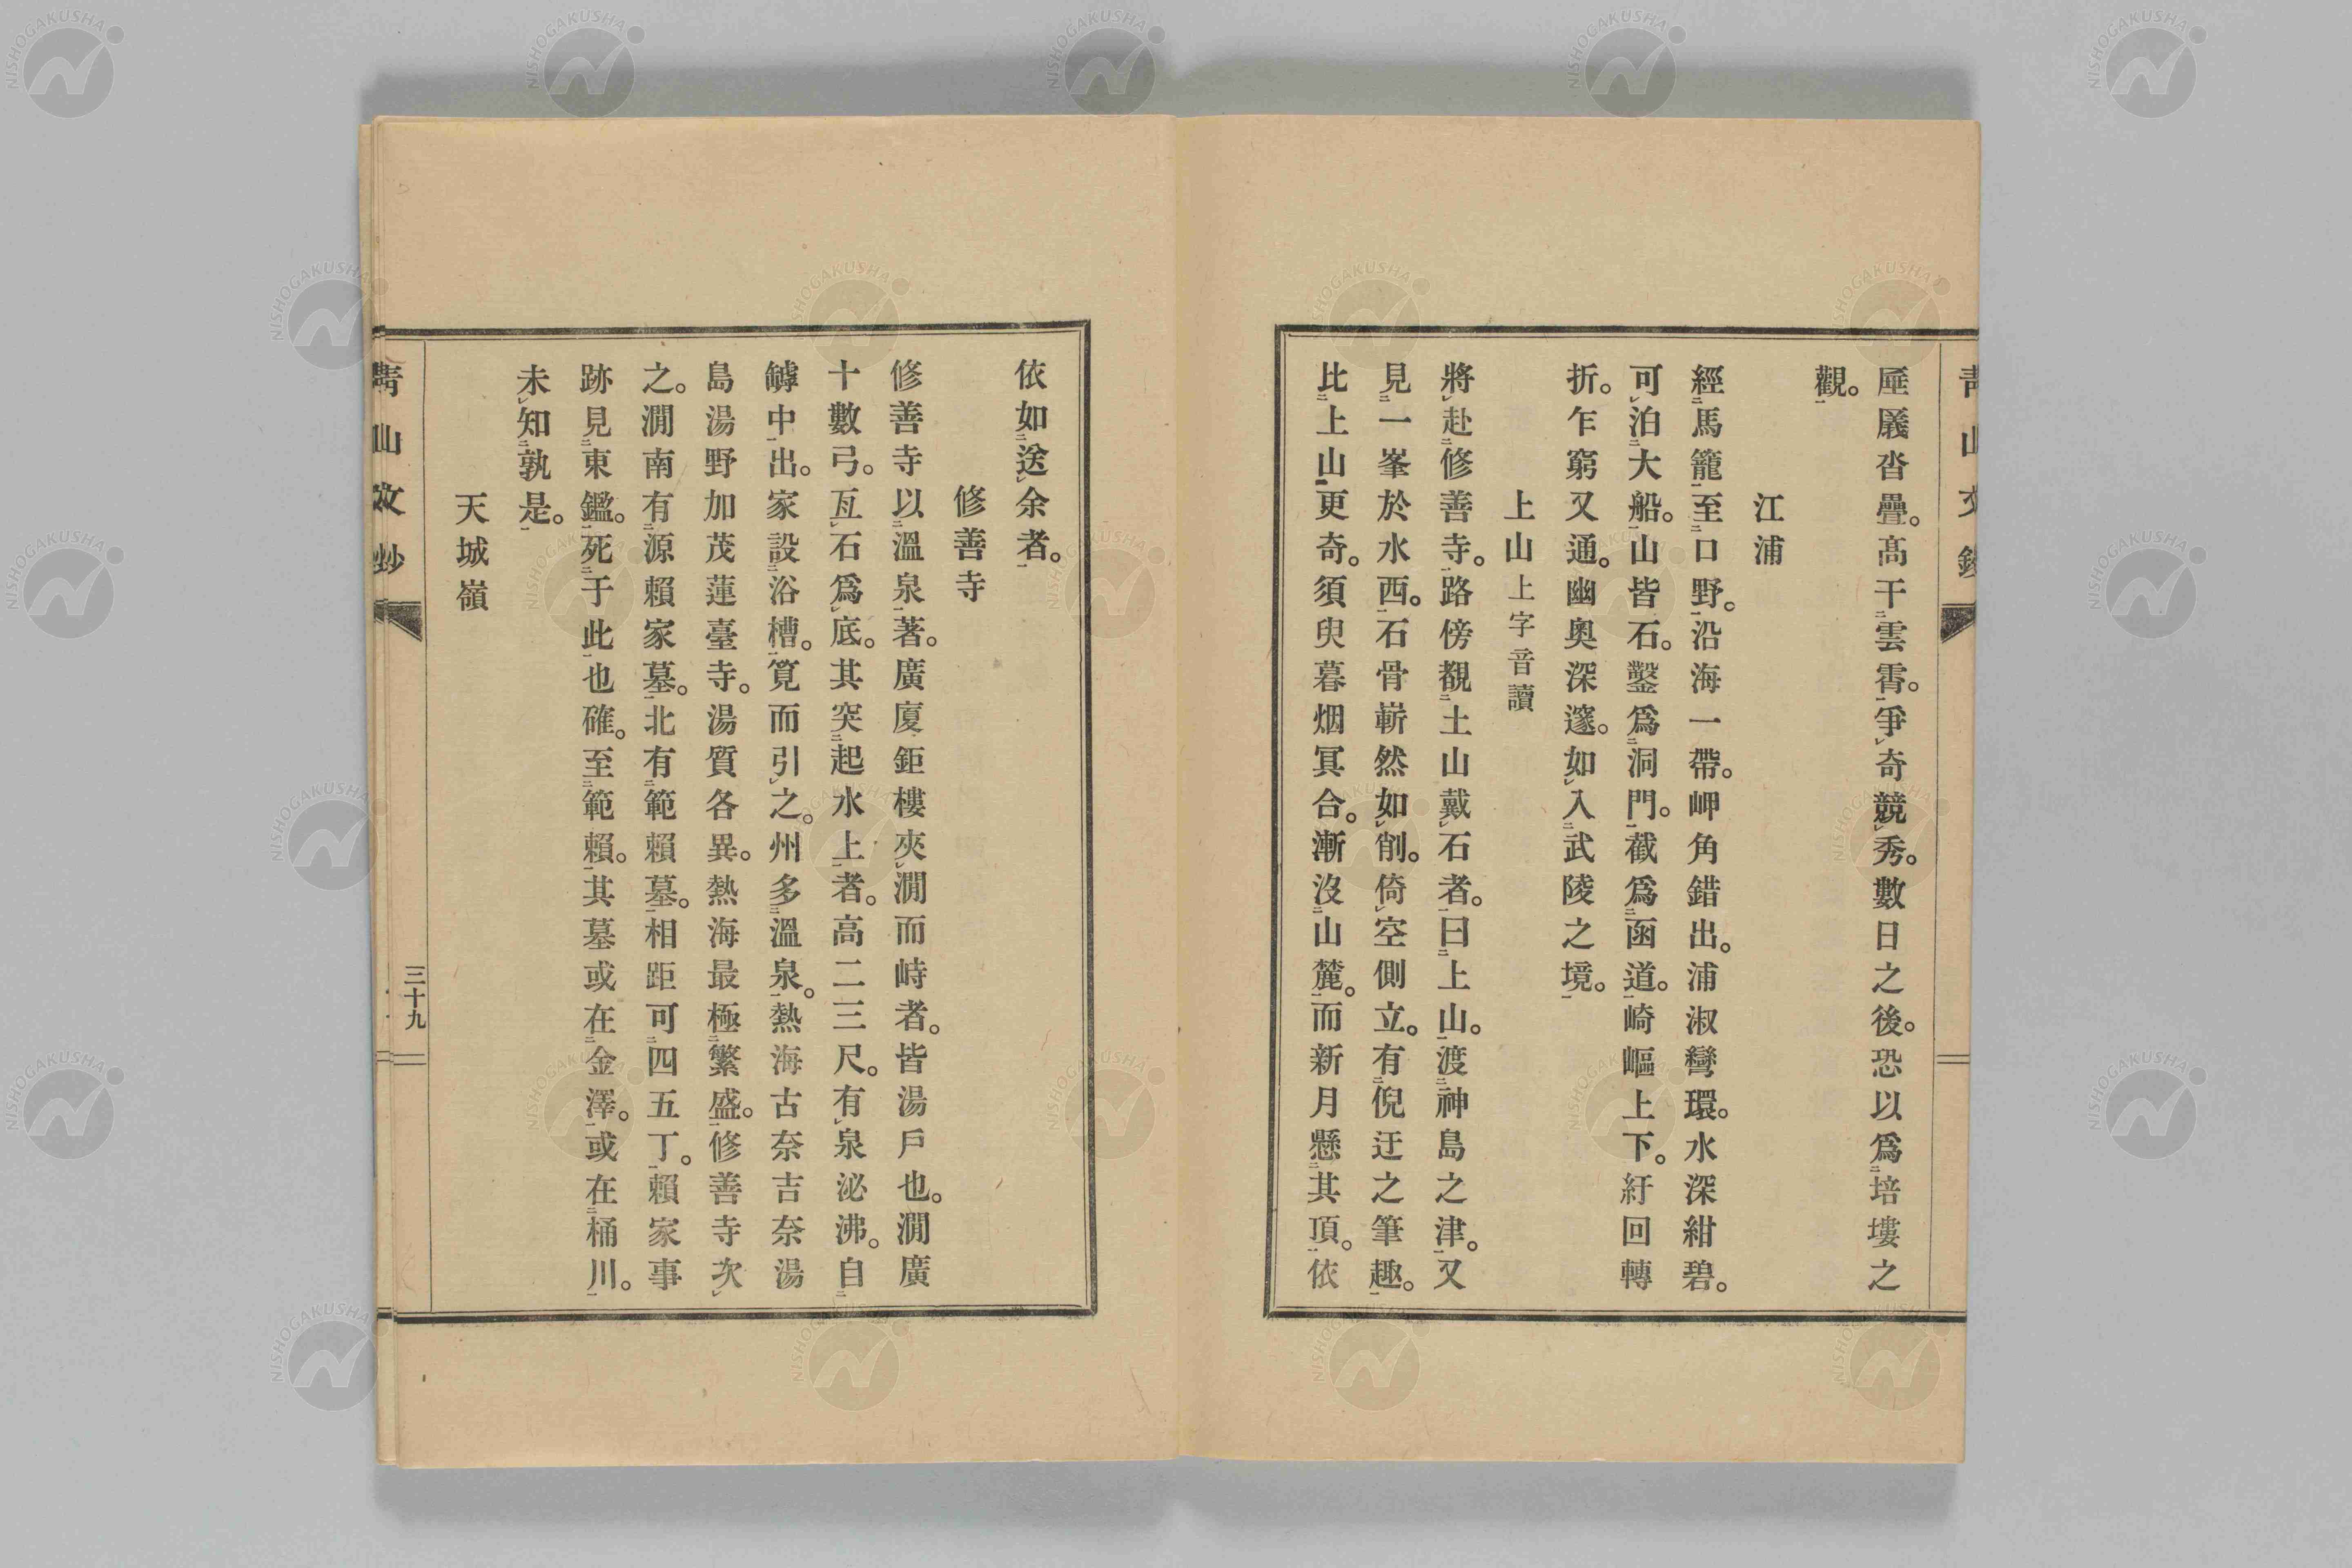 厓㕒沓疊。高干雲霄。爭奇競秀。數日之後。恐以爲培塿之
觀。
江浦
經馬籠至口野。沿海一帶。岬角錯出。浦淑彎環。水深紺碧。
可泊大船。山皆石。鑿爲洞門。截爲函道。崎嶇上下。紆回轉
折。乍窮又通。幽奧深邃。如入武陵之境。
上山上字音讀
將赴修善寺。路傍覩土山戴石者。曰上山。渡神島之津。又
見一峯於水西。石骨嶄然如削。倚空側立。有倪迂之筆趣。
比上山更奇。須臾暮烟冥合。漸沒山麓。而新月懸其頂。依
依如送余者。
修善寺
修善寺以溫泉著。廣廈鉅樓夾澗而峙者。皆湯戶也。澗廣
十數弓。亙石爲底。其突起水上者。高二三尺。有泉泌沸。自
罅中出。家設浴槽。筧而引之。州多溫泉。熱海古奈吉奈湯
島湯野加茂蓮臺寺。湯質各異。熱海最極繁盛。修善寺次
之。澗南有源賴家墓。北有範賴墓。相距可四五丁。賴家事
跡見東鑑。死于此也確。至範賴。其墓或在金澤。或在桶川。
未知孰是。
天城嶺
青山文鈔
三十九
NISHOGAKUSHA